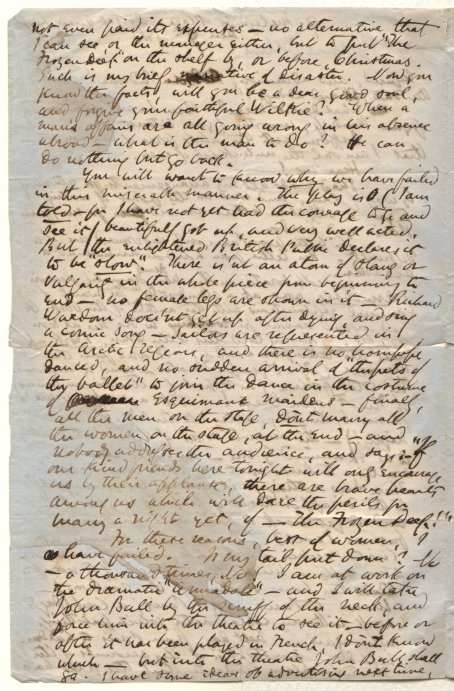 not even paid its expenses — no alternative that
I can see or the manager either, but to put "The
Frozen Deep" on the shelf by, or before Christmas.
Such is my brief narrative of disaster. Now you
know the facts will you be a dear good soul,
and forgive your faithful Wilkie? When a
man's affairs are all going wrong in his absence
abroad — what is the man to do? He can
do nothing but go back.
You will want to know why we have failed
in this miserable manner. The play is (I am
told — for I have not yet had the courage to go and
see it) beautifully got up, and very well acted.
But the enlightened British Public declares it
to be "slow". There isn't an atom of slang or
vulgarity in the whole piece from beginning to
end — no female legs are shown in it — Richard
Wardour doesn't get up after dying and sing
a comic song — sailors are represented in
the Arctic regions, and there is no hornpipe
danced, and no sudden arrival of "the pets of
the ballet" to join the dance in the costume
of Esquimaux maidens — finally,
all the men on the stage, don't marry all
the women on the stage, at the end — and
nobody addresses the audience, and says — "If
our kind friends here tonight will only encourage
us by their applause, there are brave hearts
among us which will dare the perils for
many a night yet, of — The Frozen Deep!"
For these reasons, best of women, I
have failed. Is my tail put down? No
— a thousand times, No! I am at work on
the dramatic "Armadale" — and I will take
John Bull by the scruff of the neck, and
force him into the theatre to see it — before or
after it has been played in French, I don't know
which — but into the theatre John Bull shall
go. I have some ideas of advertising next time,